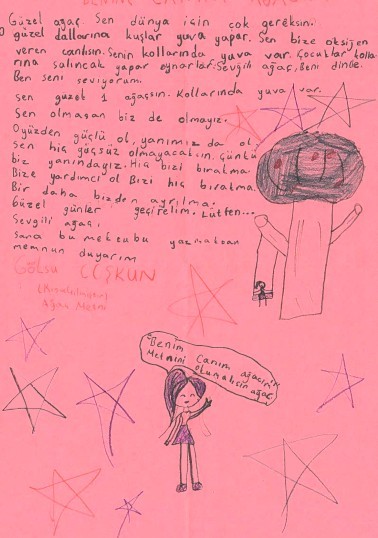 BENİM
Güzel ağaç. Sen dünya için çok gereksin.
güzel dallarına kuşlar yuva yapar. Sen bize oksijen
veren canlısın. Senin kollarında yuva var. Çocuklar kolla-
rına salıncak yapar oynarlar. Sevgili ağaç, Beni dinle.
Ben seni seviyorum.
Sen güzel 1 ağaçsın. Kollarında yuva var.
Sen olmasan biz de olmayız.
Oyüzden güçlü ol, yanımız da ol.
Sen hiç güçsüz olmayacaksın. Çünkü
biz yanındayız. Hiç bizi bıratma.
Bize yardımcı ol Bizi hiç bıratma.
Bir daha bizden ayrılma.
Güzel günler geçirelim. Lütfen...
Sevgili ağaç,
sana bu metubu yazmaktan
memnun duyarım
Gülsu COŞKUN
Ağaç Metni
Benim Canım ağacım
Metnimi okumalısın ağaç